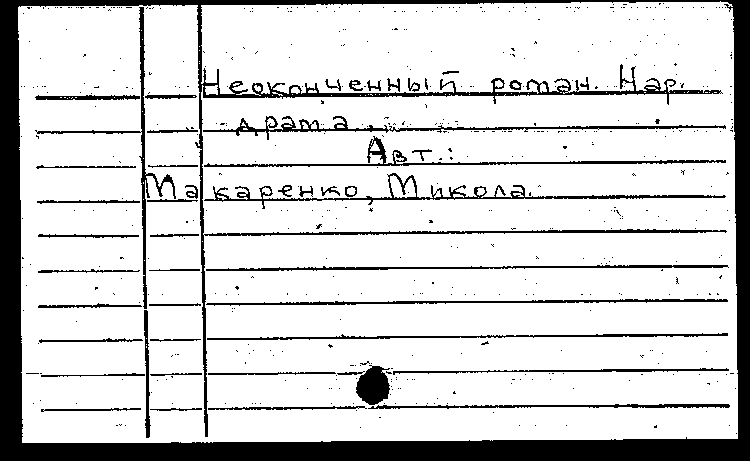 Неоконченный роман. Нар.
драма.
Авт.:
Макаренко, Микола.